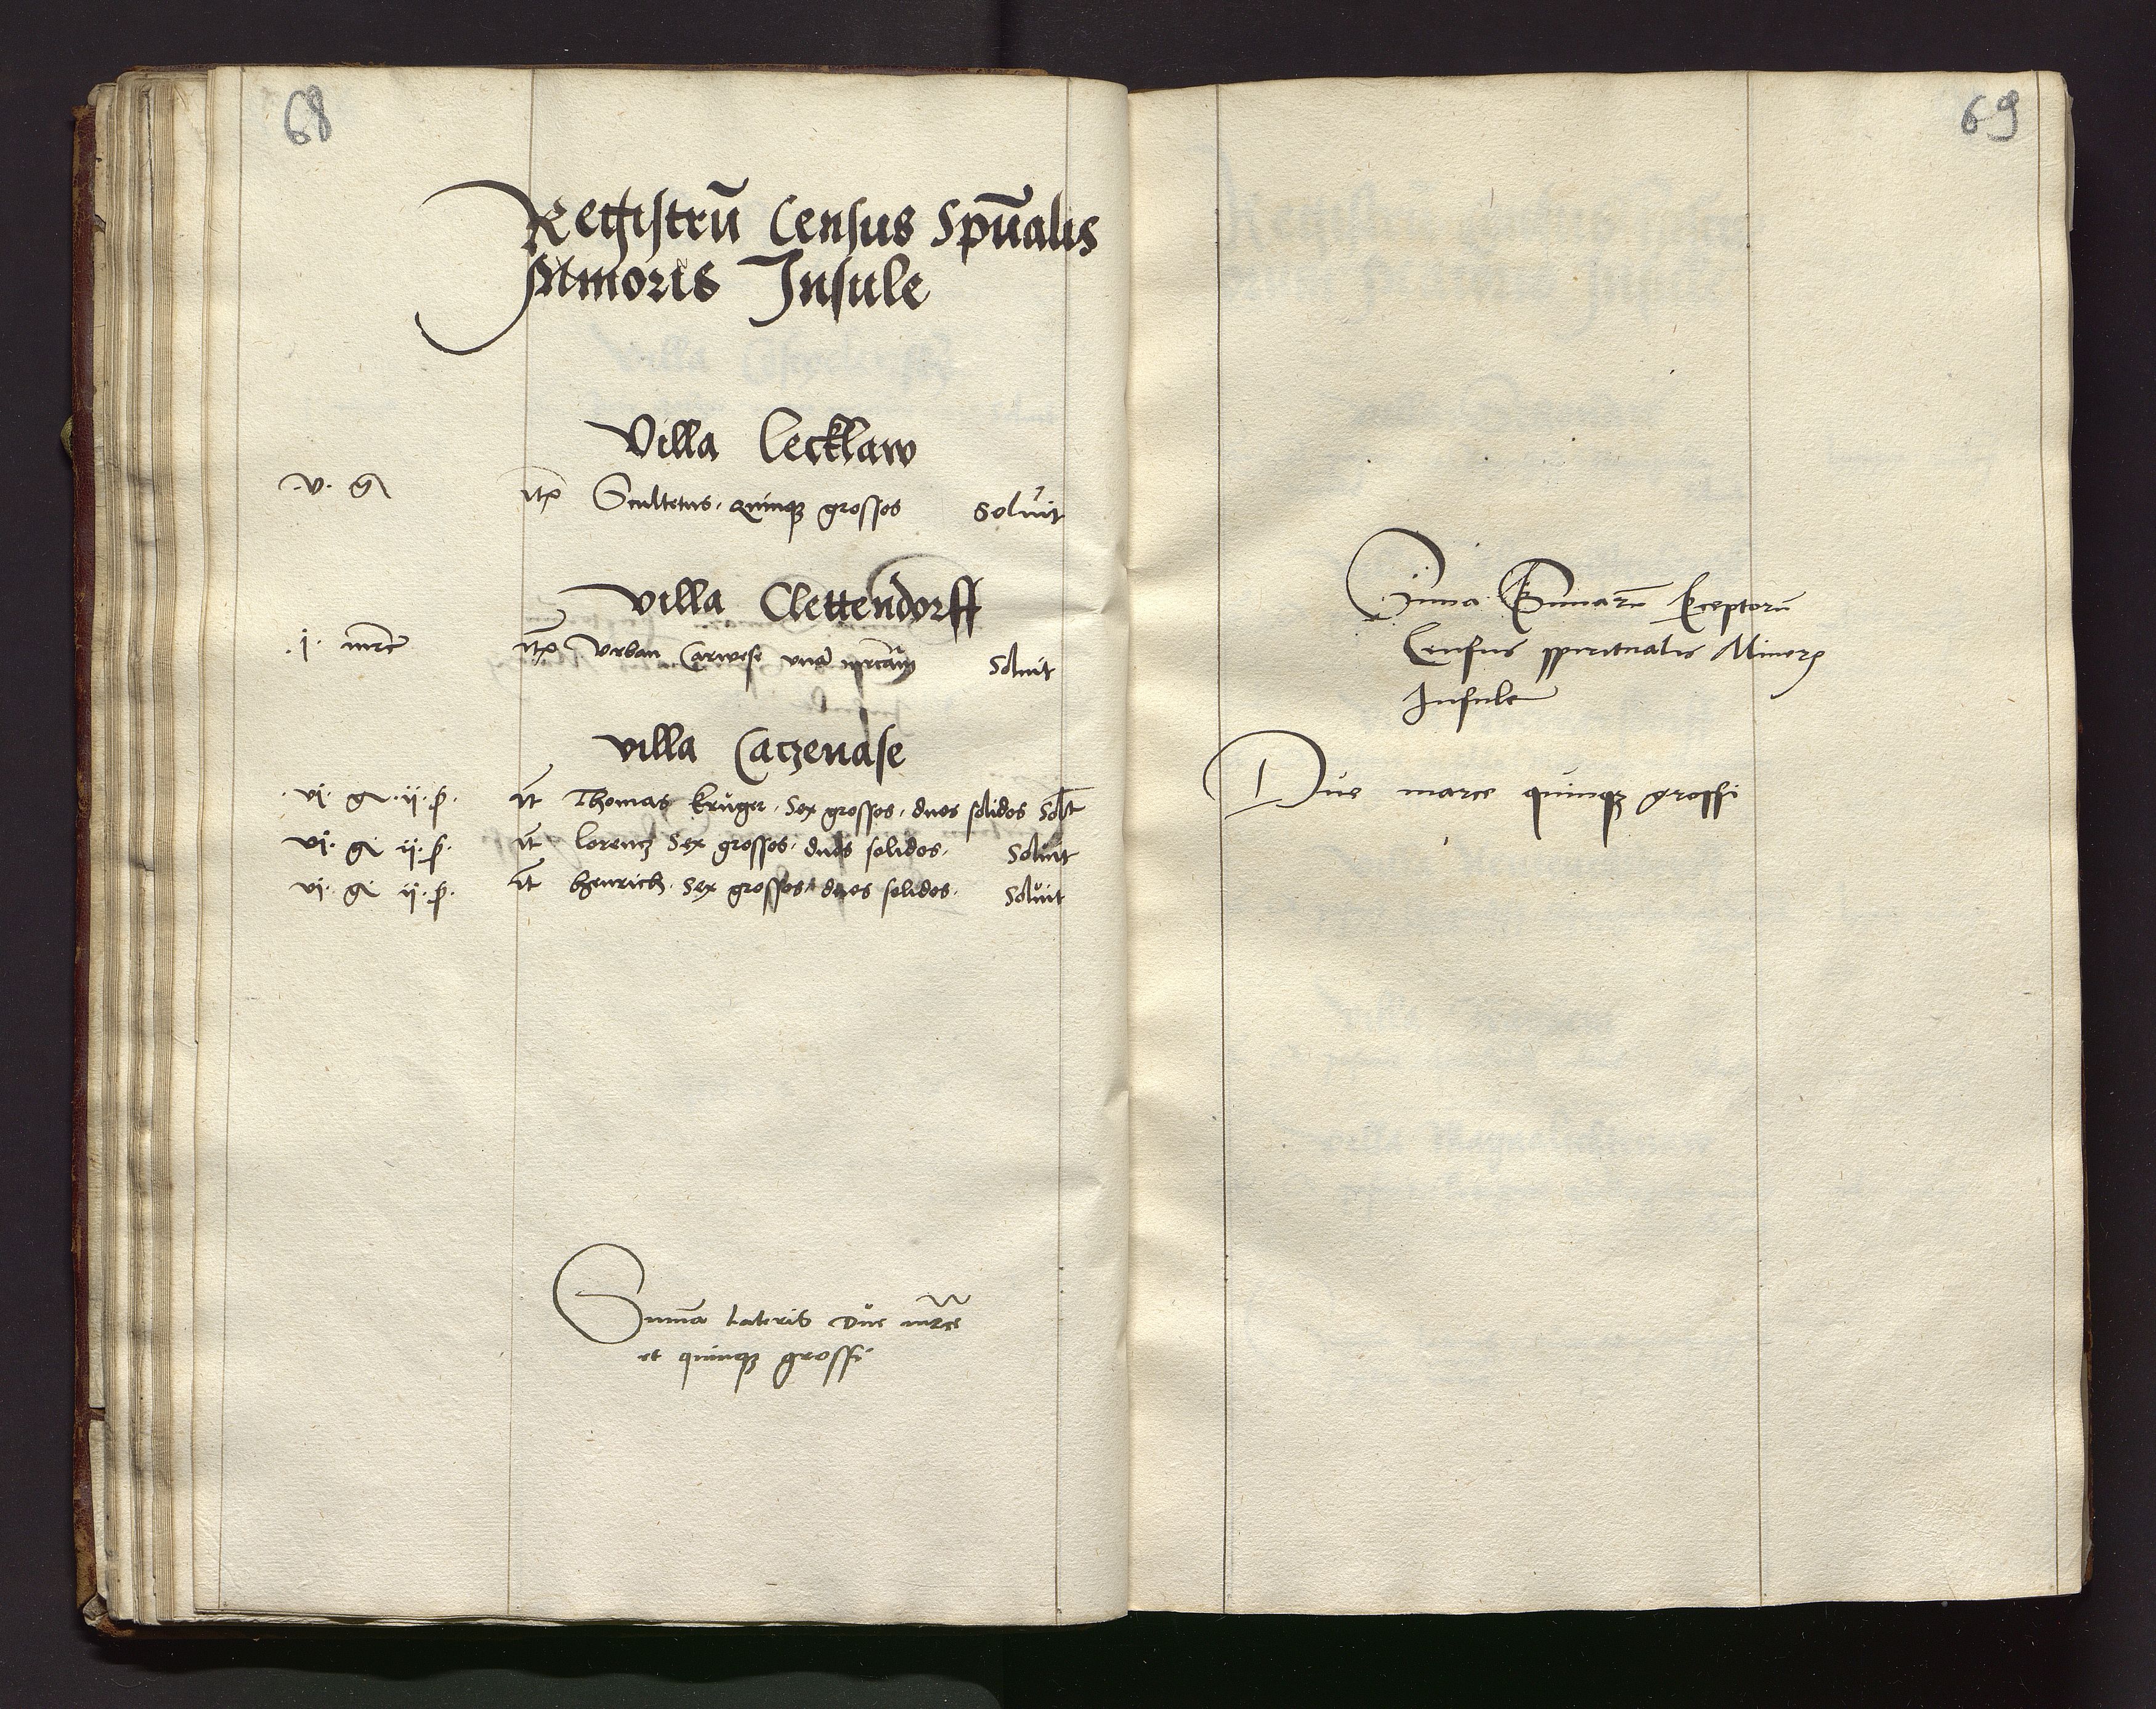 68
Registrū Census Spūalis
Minoris Insule
Villa Lecklaw
.v. g̃
itē Scultetus. quinqȝ grosses Soluit
Villa Clettendorff
.i. mrc̄
itē Vrban Carwese vnā mrcām Soluit
villa Caczenase
.vi. g̃. ii. ß. it̄ Thomas krüger. Sex grosses. duos solidos Solt̄
vi. g̃ ii. ß. it̄ lorencz Sex grosses. duos solidos. Soluit
vi. g̃ ii. ß. it̄ henrich. Sex grosses duos solidos. Soluit
Sum̄a Lateris Due mr̄ce
et quinqȝ grossi
69
Sum̄a Sum̄arū Rceptorū
Census spiritualis Minorꝭ
Insule
Due marce quinqȝ grossi